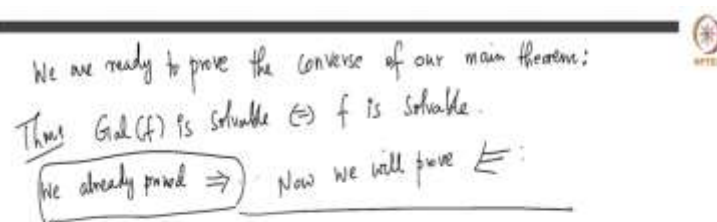 We are ready to prove the converse of our main theorem:
Thm: Gal(f) is solvable ⇔ f is solvable.
We already proved ⇒ . Now we will prove ⇐ :
NPTEL